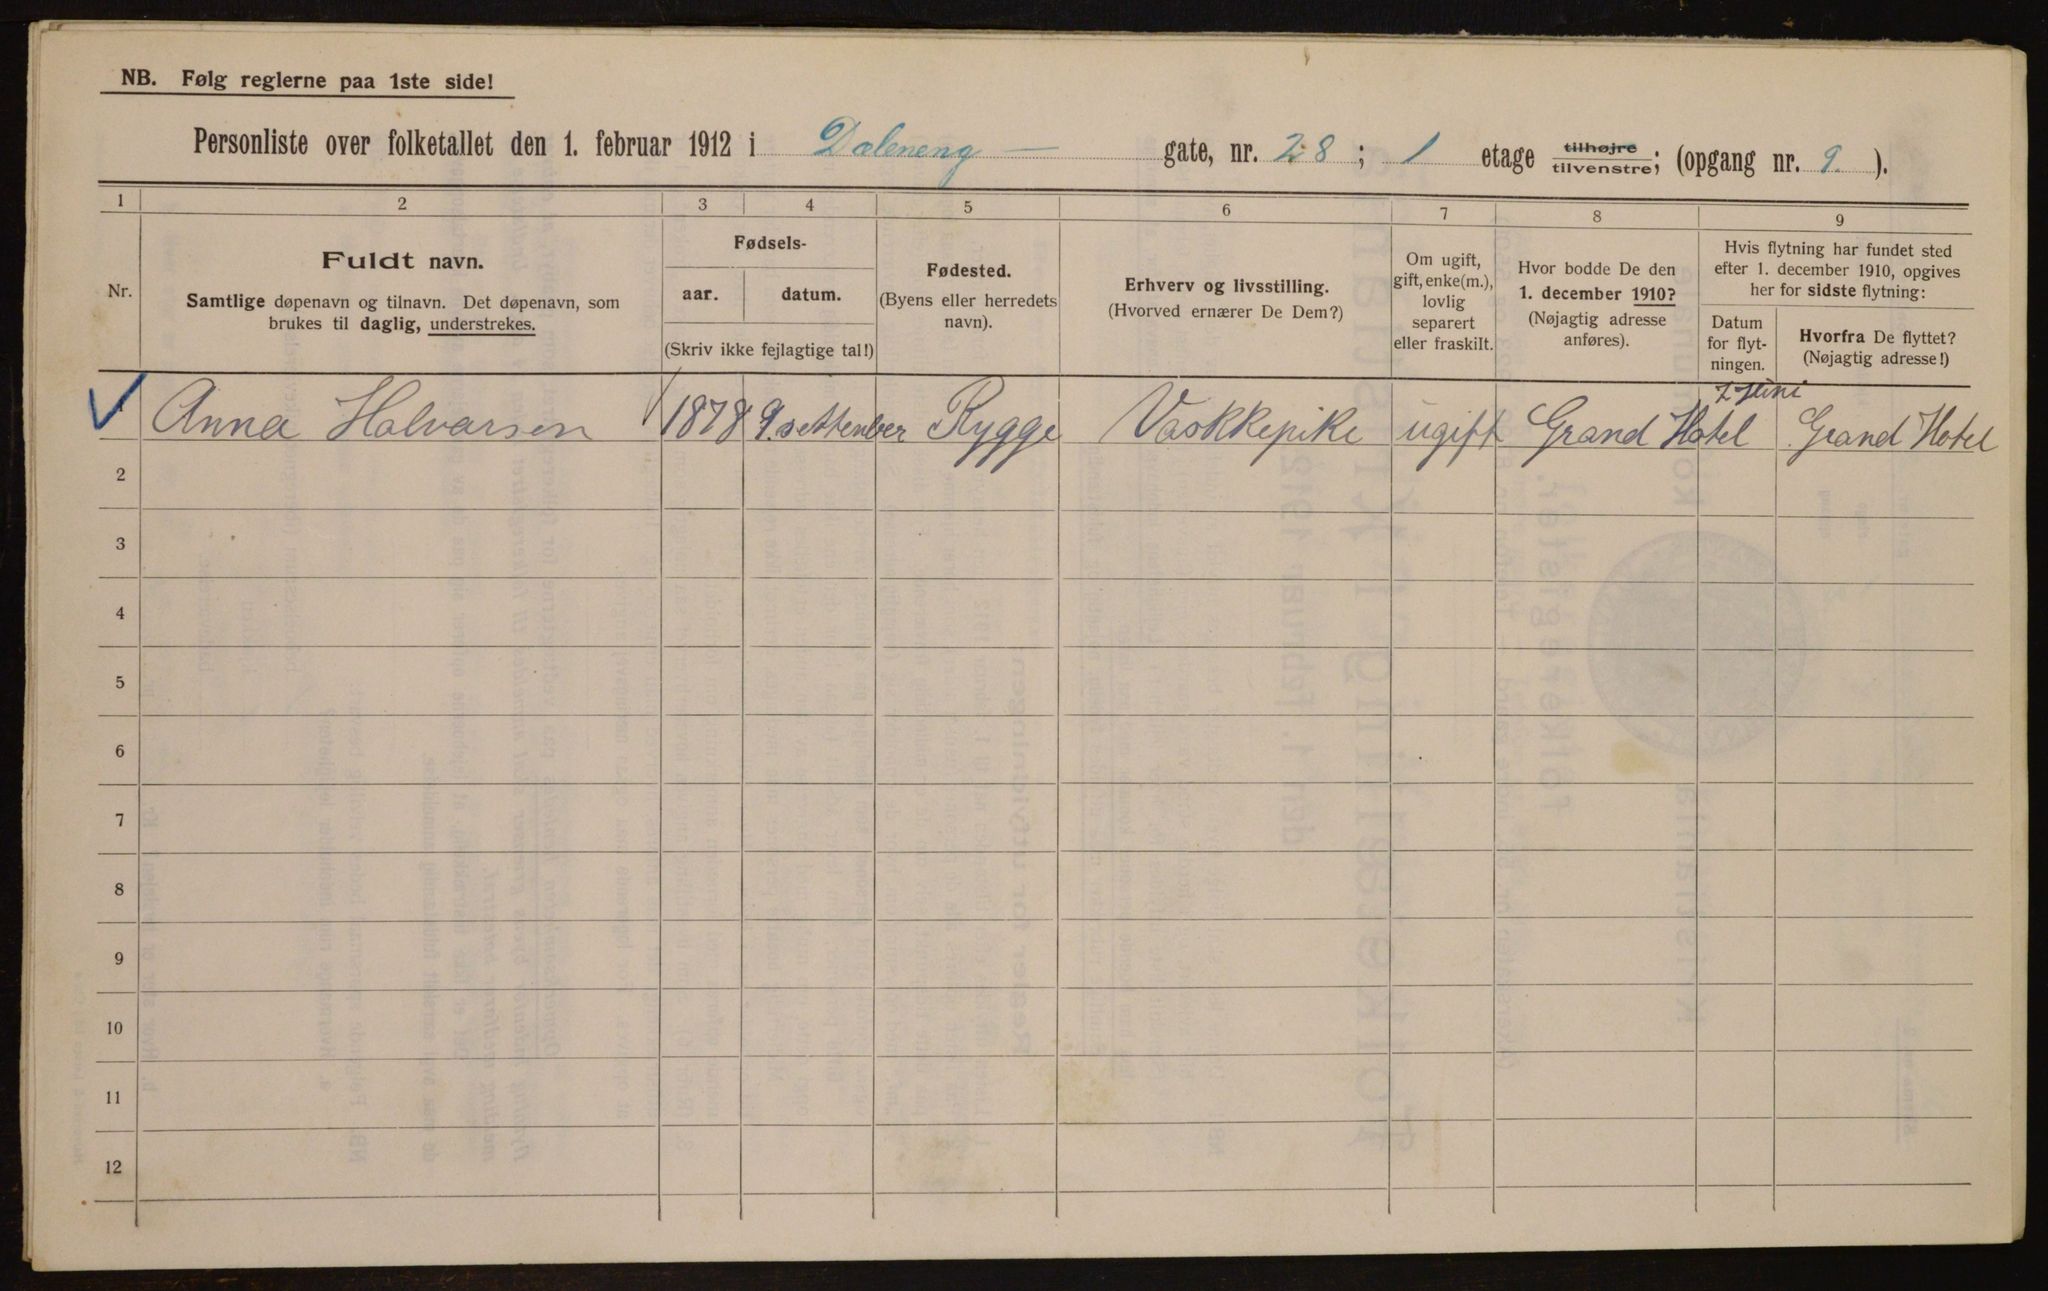 NB. Følg reglerne paa 1ste side!
Personliste over folketallet den 1. februar 1912 i Dæleneng — gate, nr. 28; 1 etage tilhøjre tilvenstre; (opgang nr. 9.).
1 2 3 4 5 6 7 8 9
Nr.
Fuldt navn.
Samtlige døpenavn og tilnavn. Det døpenavn, som
brukes til daglig, understrekes.
Fødsels-
aar. datum.
(Skriv ikke fejlagtige tal!)
Fødested.
(Byens eller herredets
navn).
Erhverv og livsstilling.
(Hvorved ernærer De Dem?)
Om ugift,
gift, enke(m.),
lovlig
separert
eller fraskilt.
Hvor bodde De den
1. december 1910?
(Nøjagtig adresse
anføres).
Hvis flytning har fundet sted
efter 1. december 1910, opgives
her for sidste flytning:
Datum
for flyt-
ningen.
Hvorfra De flyttet?
(Nøjagtig adresse!)
1 Anna Halvarsen 1878 9. settember Rygge Vaskkepike ugift Grand Hotel 2 Juni Grand Hotel
2
3
4
5
6
7
8
9
10
11
12